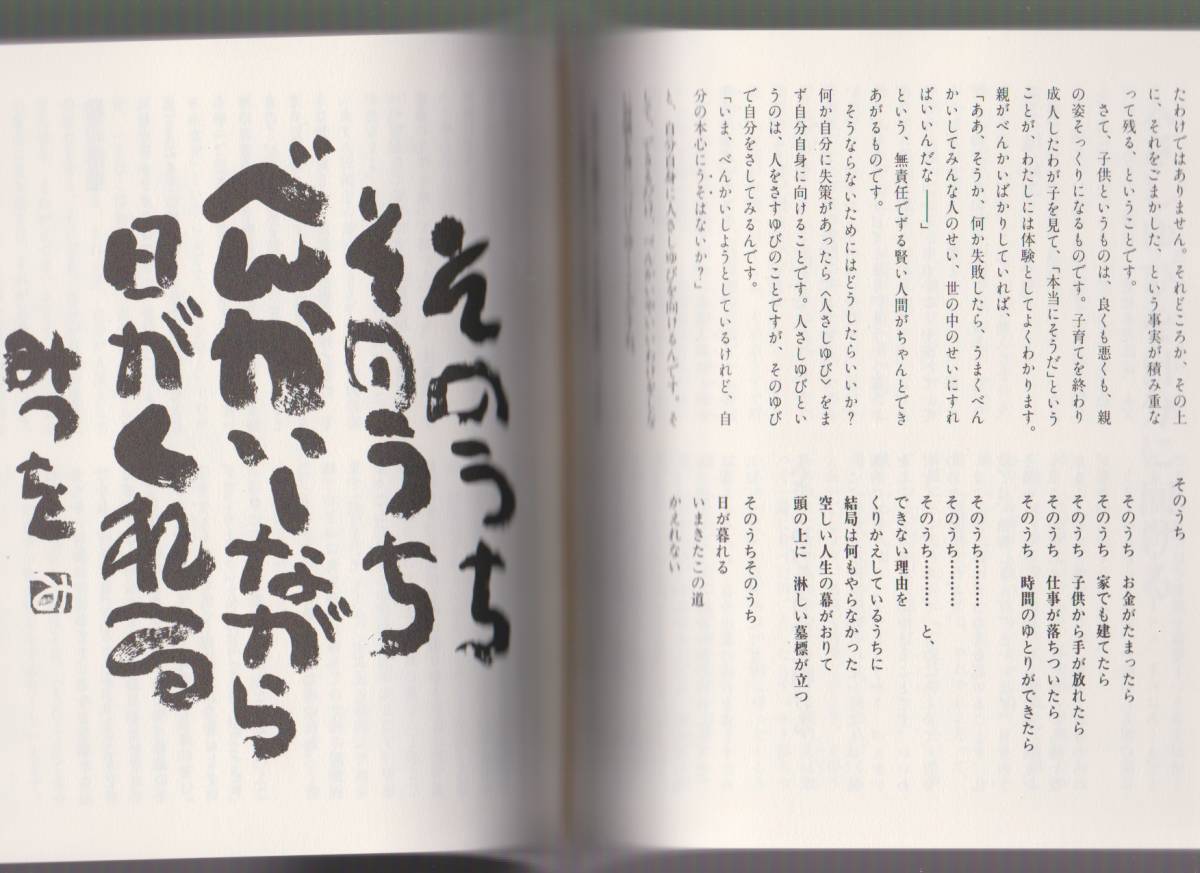 たわけではありません。それどころか、その上
に、それをごまかした、という事実が積み重な
って残る、ということです。
さて、子供というものは、良くも悪くも、親
の姿そっくりになるものです。子育てを終わり
成人したわが子を見て、「本当にそうだ」という
ことが、わたしには体験としてよくわかります。
親がべんかいばかりしていれば、
「ああ、そうか、何か失敗したら、うまくべん
かいしてみんな人のせい、世の中のせいにすれ
ばいいんだな――」
という、無責任でずる賢い人間がちゃんとでき
あがるものです。
そうならないためにはどうしたらいいか？
何か自分に失策があったら〈人さしゆび〉をま
ず自分自身に向けることです。人さしゆびとい
うのは、人をさすゆびのことですが、そのゆび
で自分をさしてみるんです。
「いま、べんかいしようとしているけれど、自
分の本心にうそはないか？」
と、自分自身に人さしゆびを向けるんです。そ
そのうち
そのうち　お金がたまったら
そのうち　家でも建てたら
そのうち　子供から手が放れたら
そのうち　仕事が落ちついたら
そのうち　時間のゆとりができたら
そのうち…………
そのうち…………
そのうち…………　と、
できない理由を
くりかえしているうちに
結局は何もやらなかった
空しい人生の幕がおりて
頭の上に　淋しい墓標が立つ
そのうちそのうち
日が暮れる
いまきたこの道
かえれない
そのうち
そのうち
べんかいしながら
日がくれる
みつを